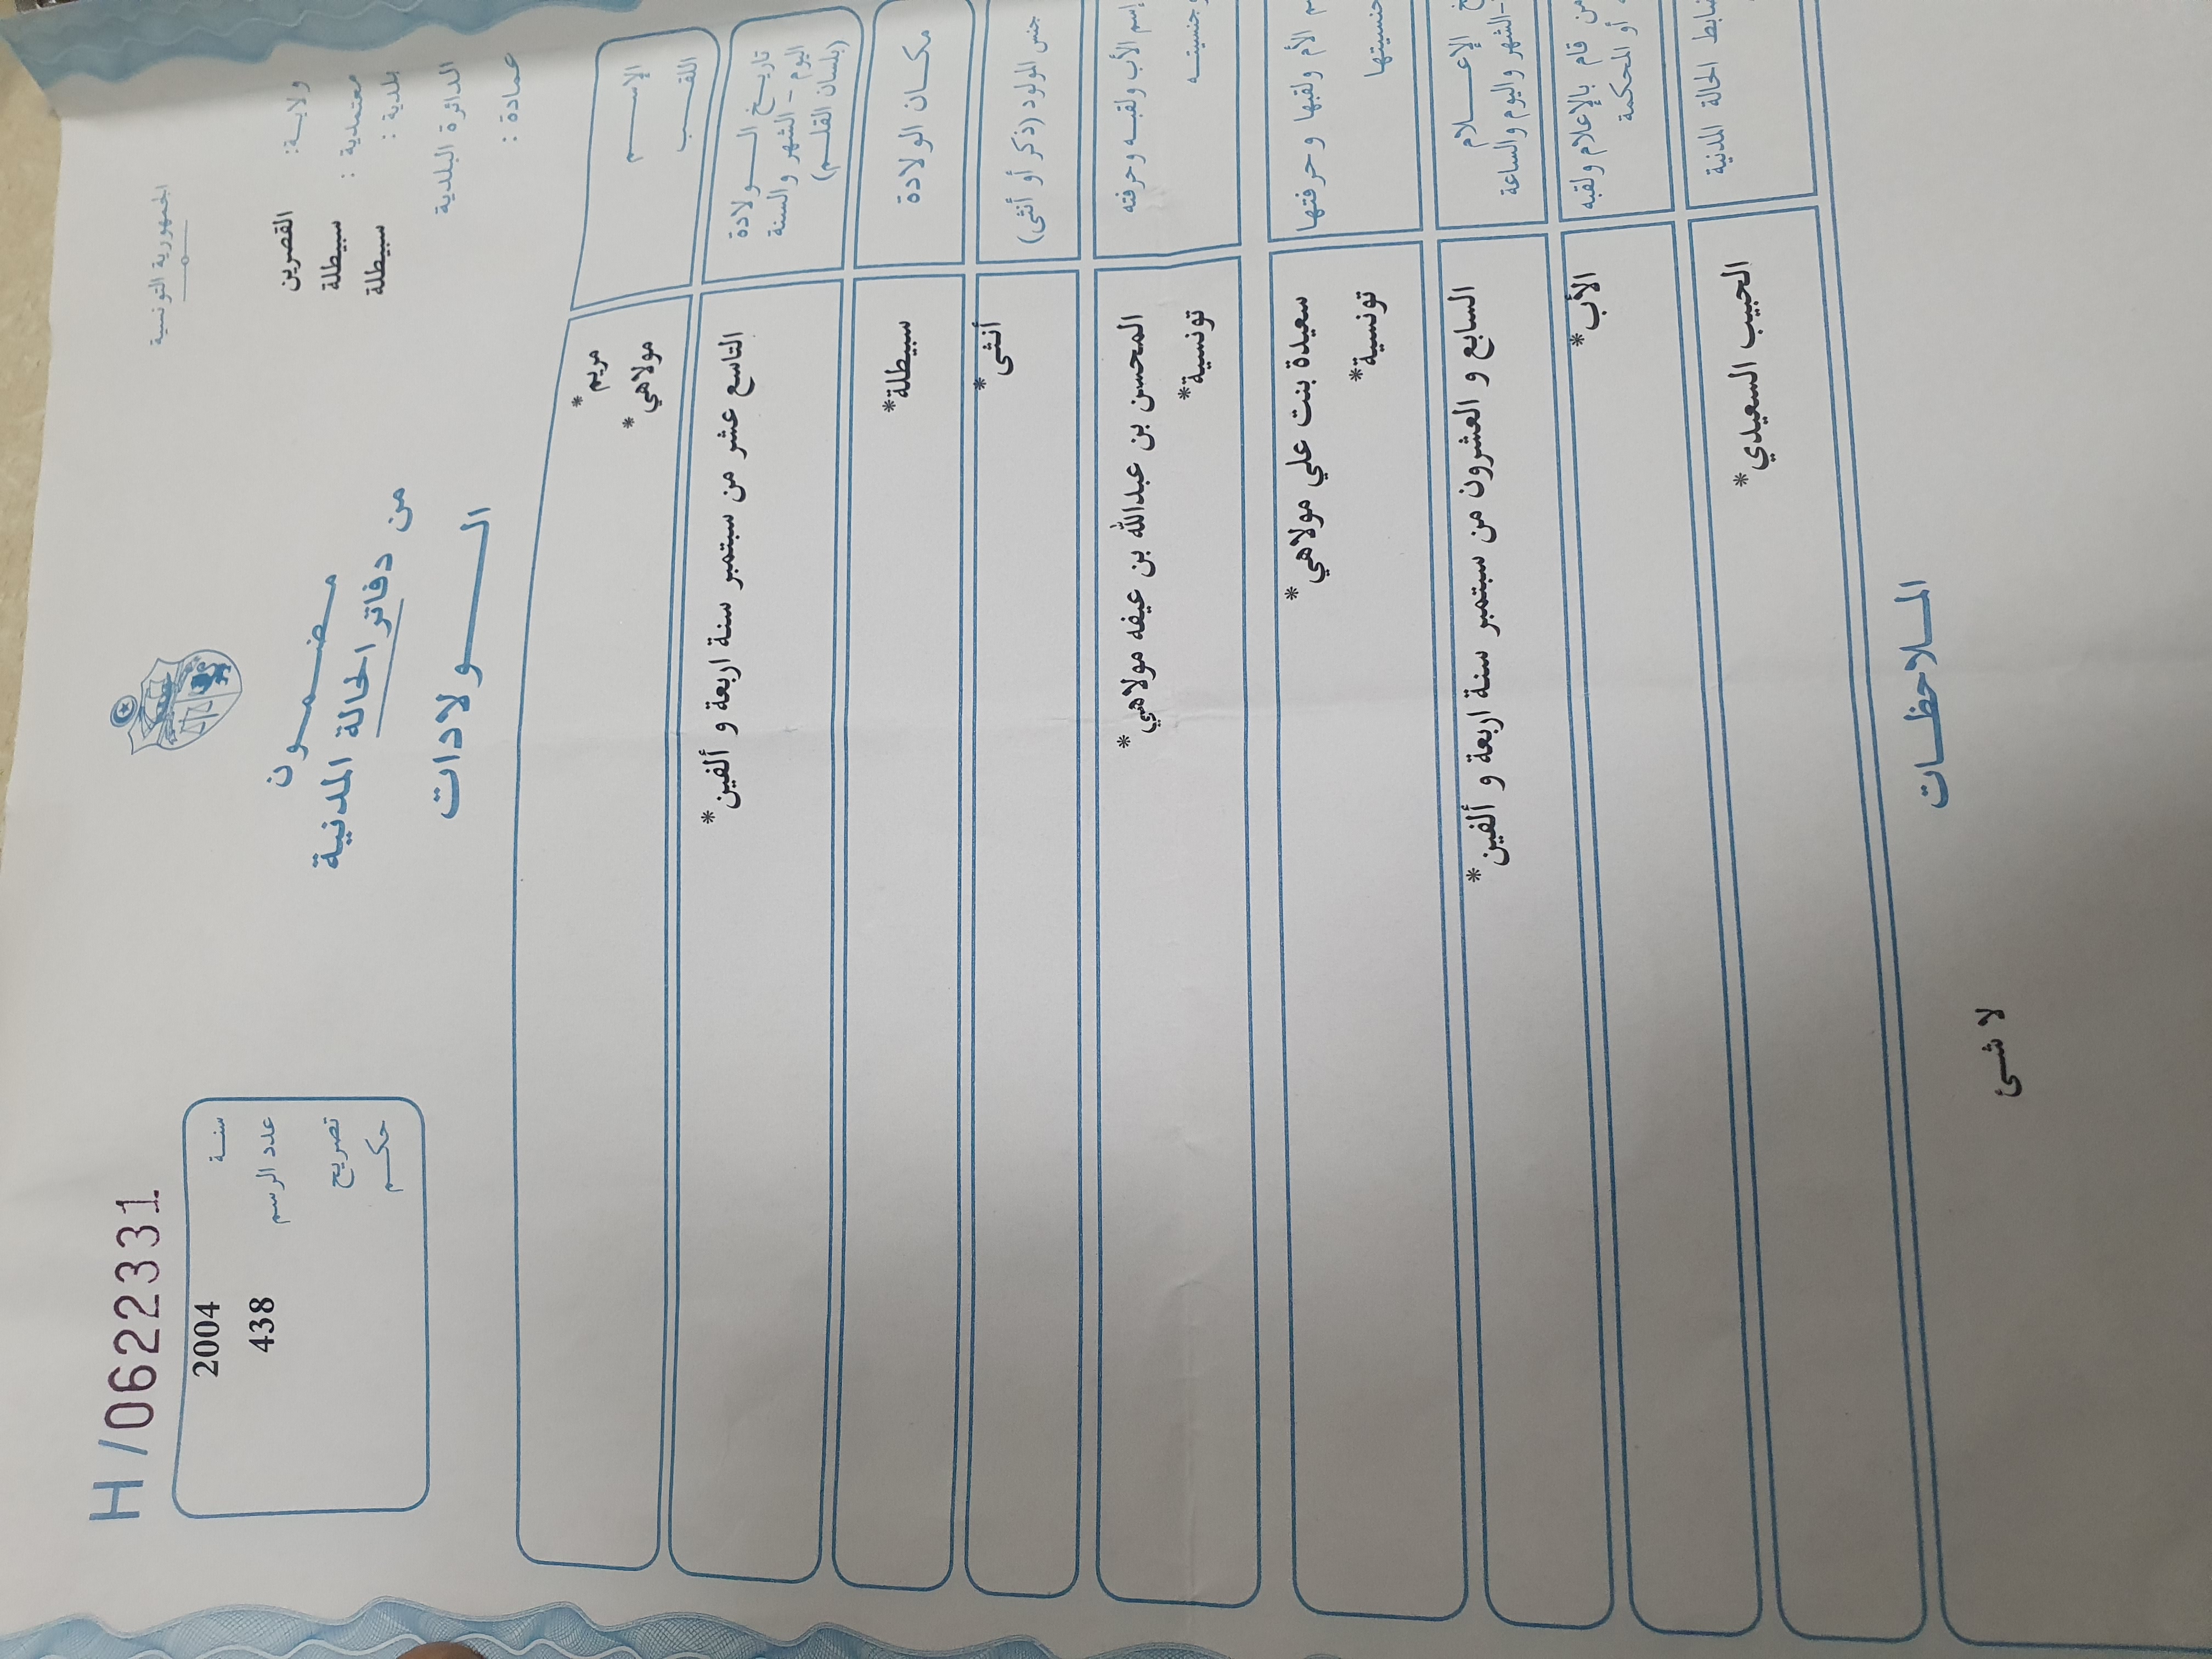 الجمهورية التونسية
H/0622331
ولايـة: القصرين
معتمدية : سبيطلة
بلدية : سبيطلة
الدائرة البلدية
عمادة :
مضمون
من دفاتر الحالة المدنية
الـولادات
سنـة 2004
عدد الرسم 438
تصريح
حكـم
الإسـم مريم *
اللقـب مولاهي *
تاريـخ الـولادة
اليوم - الشهر والسنة
(بلسان القلـم)
التاسع عشر من سبتمبر سنة اربعة و ألفين *
مكـان الولادة سبيطلة*
جنس المولود (ذكر أو أنثى) أنثى *
إسم الأب ولقبـه وحرفته
وجنسيتـه
المحسن بن عبدالله بن عيفه مولاهي *
تونسية*
الأم ولقبها وحرفتها
جنسيتها
سعيدة بنت علي مولاهي *
تونسية*
الإعـلام
-الشهر واليوم والساعة
السابع و العشرون من سبتمبر سنة اربعة و ألفين *
من قام بالإعلام ولقبه
أو المحكمة
الأب *
ضابط الحالة المدنية
الحبيب السعيدي *
المـلاحظـات
لا شئ